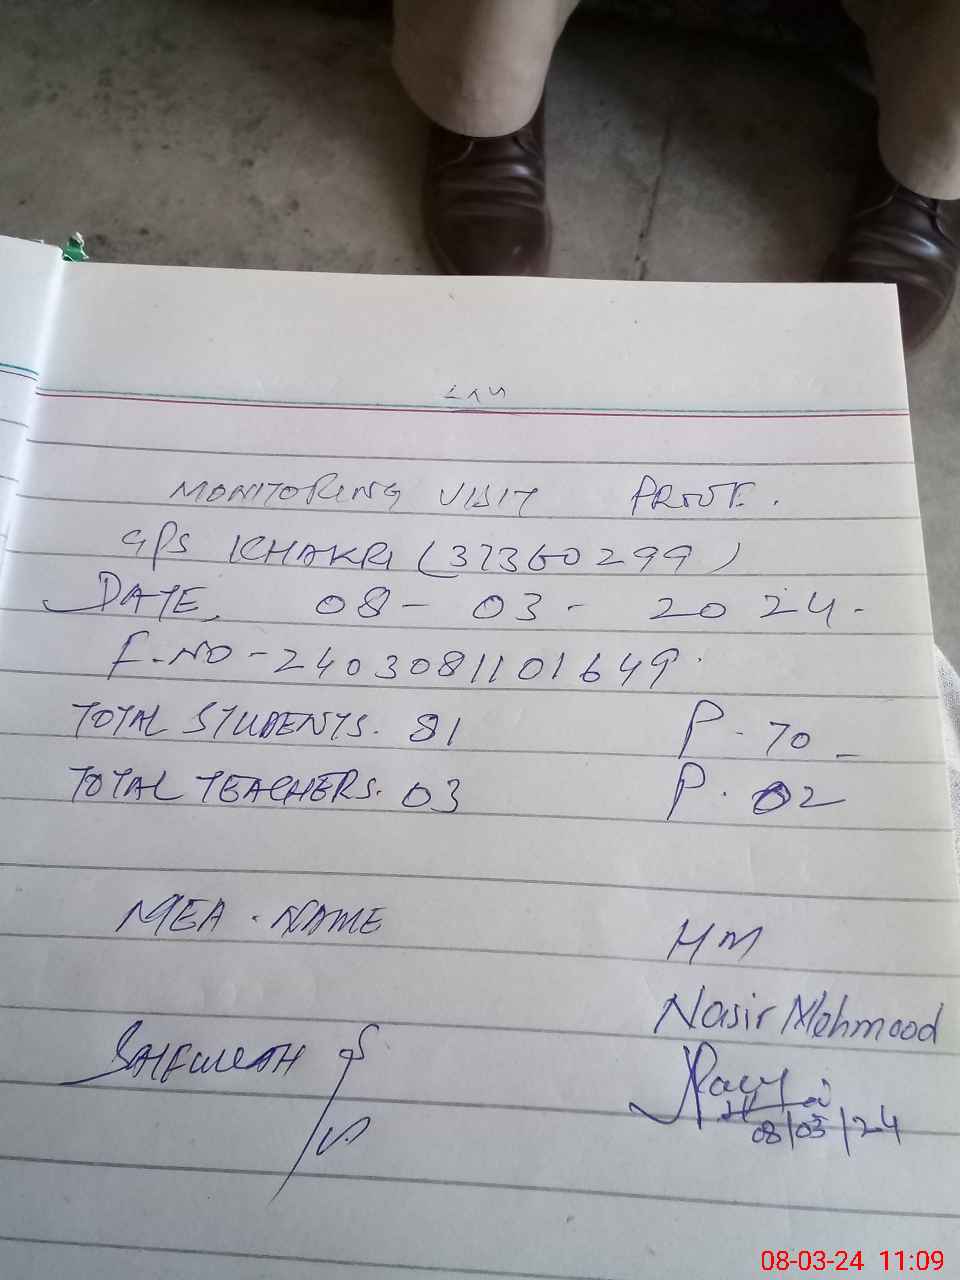 MONITORING VISIT PROVE.
GPS KHAKRI (37360299)
DATE. 08-03-2024-
F.NO-2403081101649
TOTAL STUDENTS. 81 P-70
TOTAL TEACHERS. 03 P. 02
MEA. NAME
HM
Nasir Mehmood
SAIFULLAH
08/03/24
08-03-24 11:09